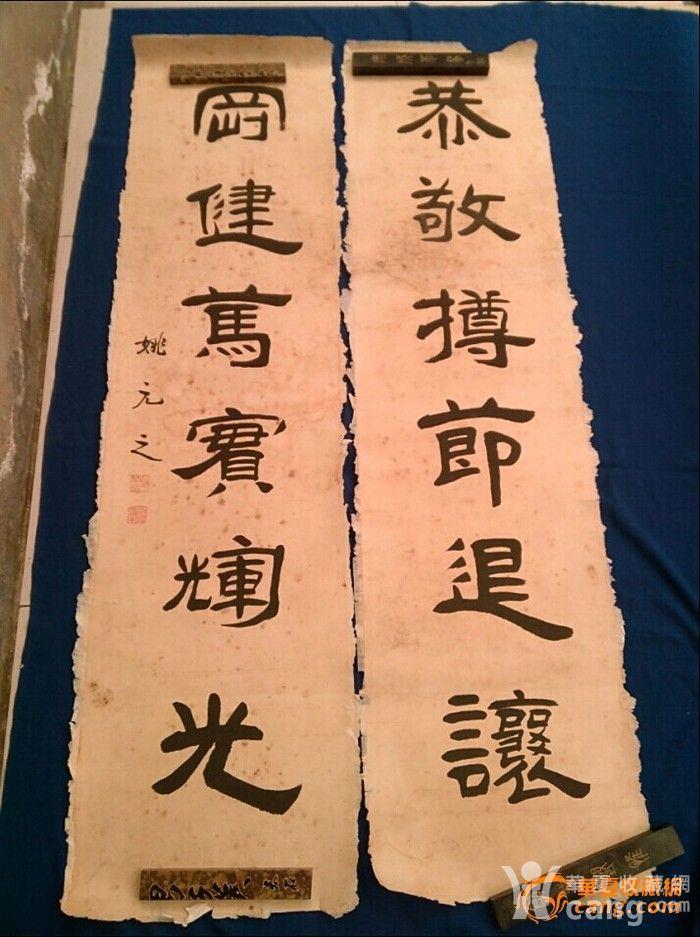 恭敬撙節退讓
剛健篤實輝光
姚元之
華夏收藏網
cang.com